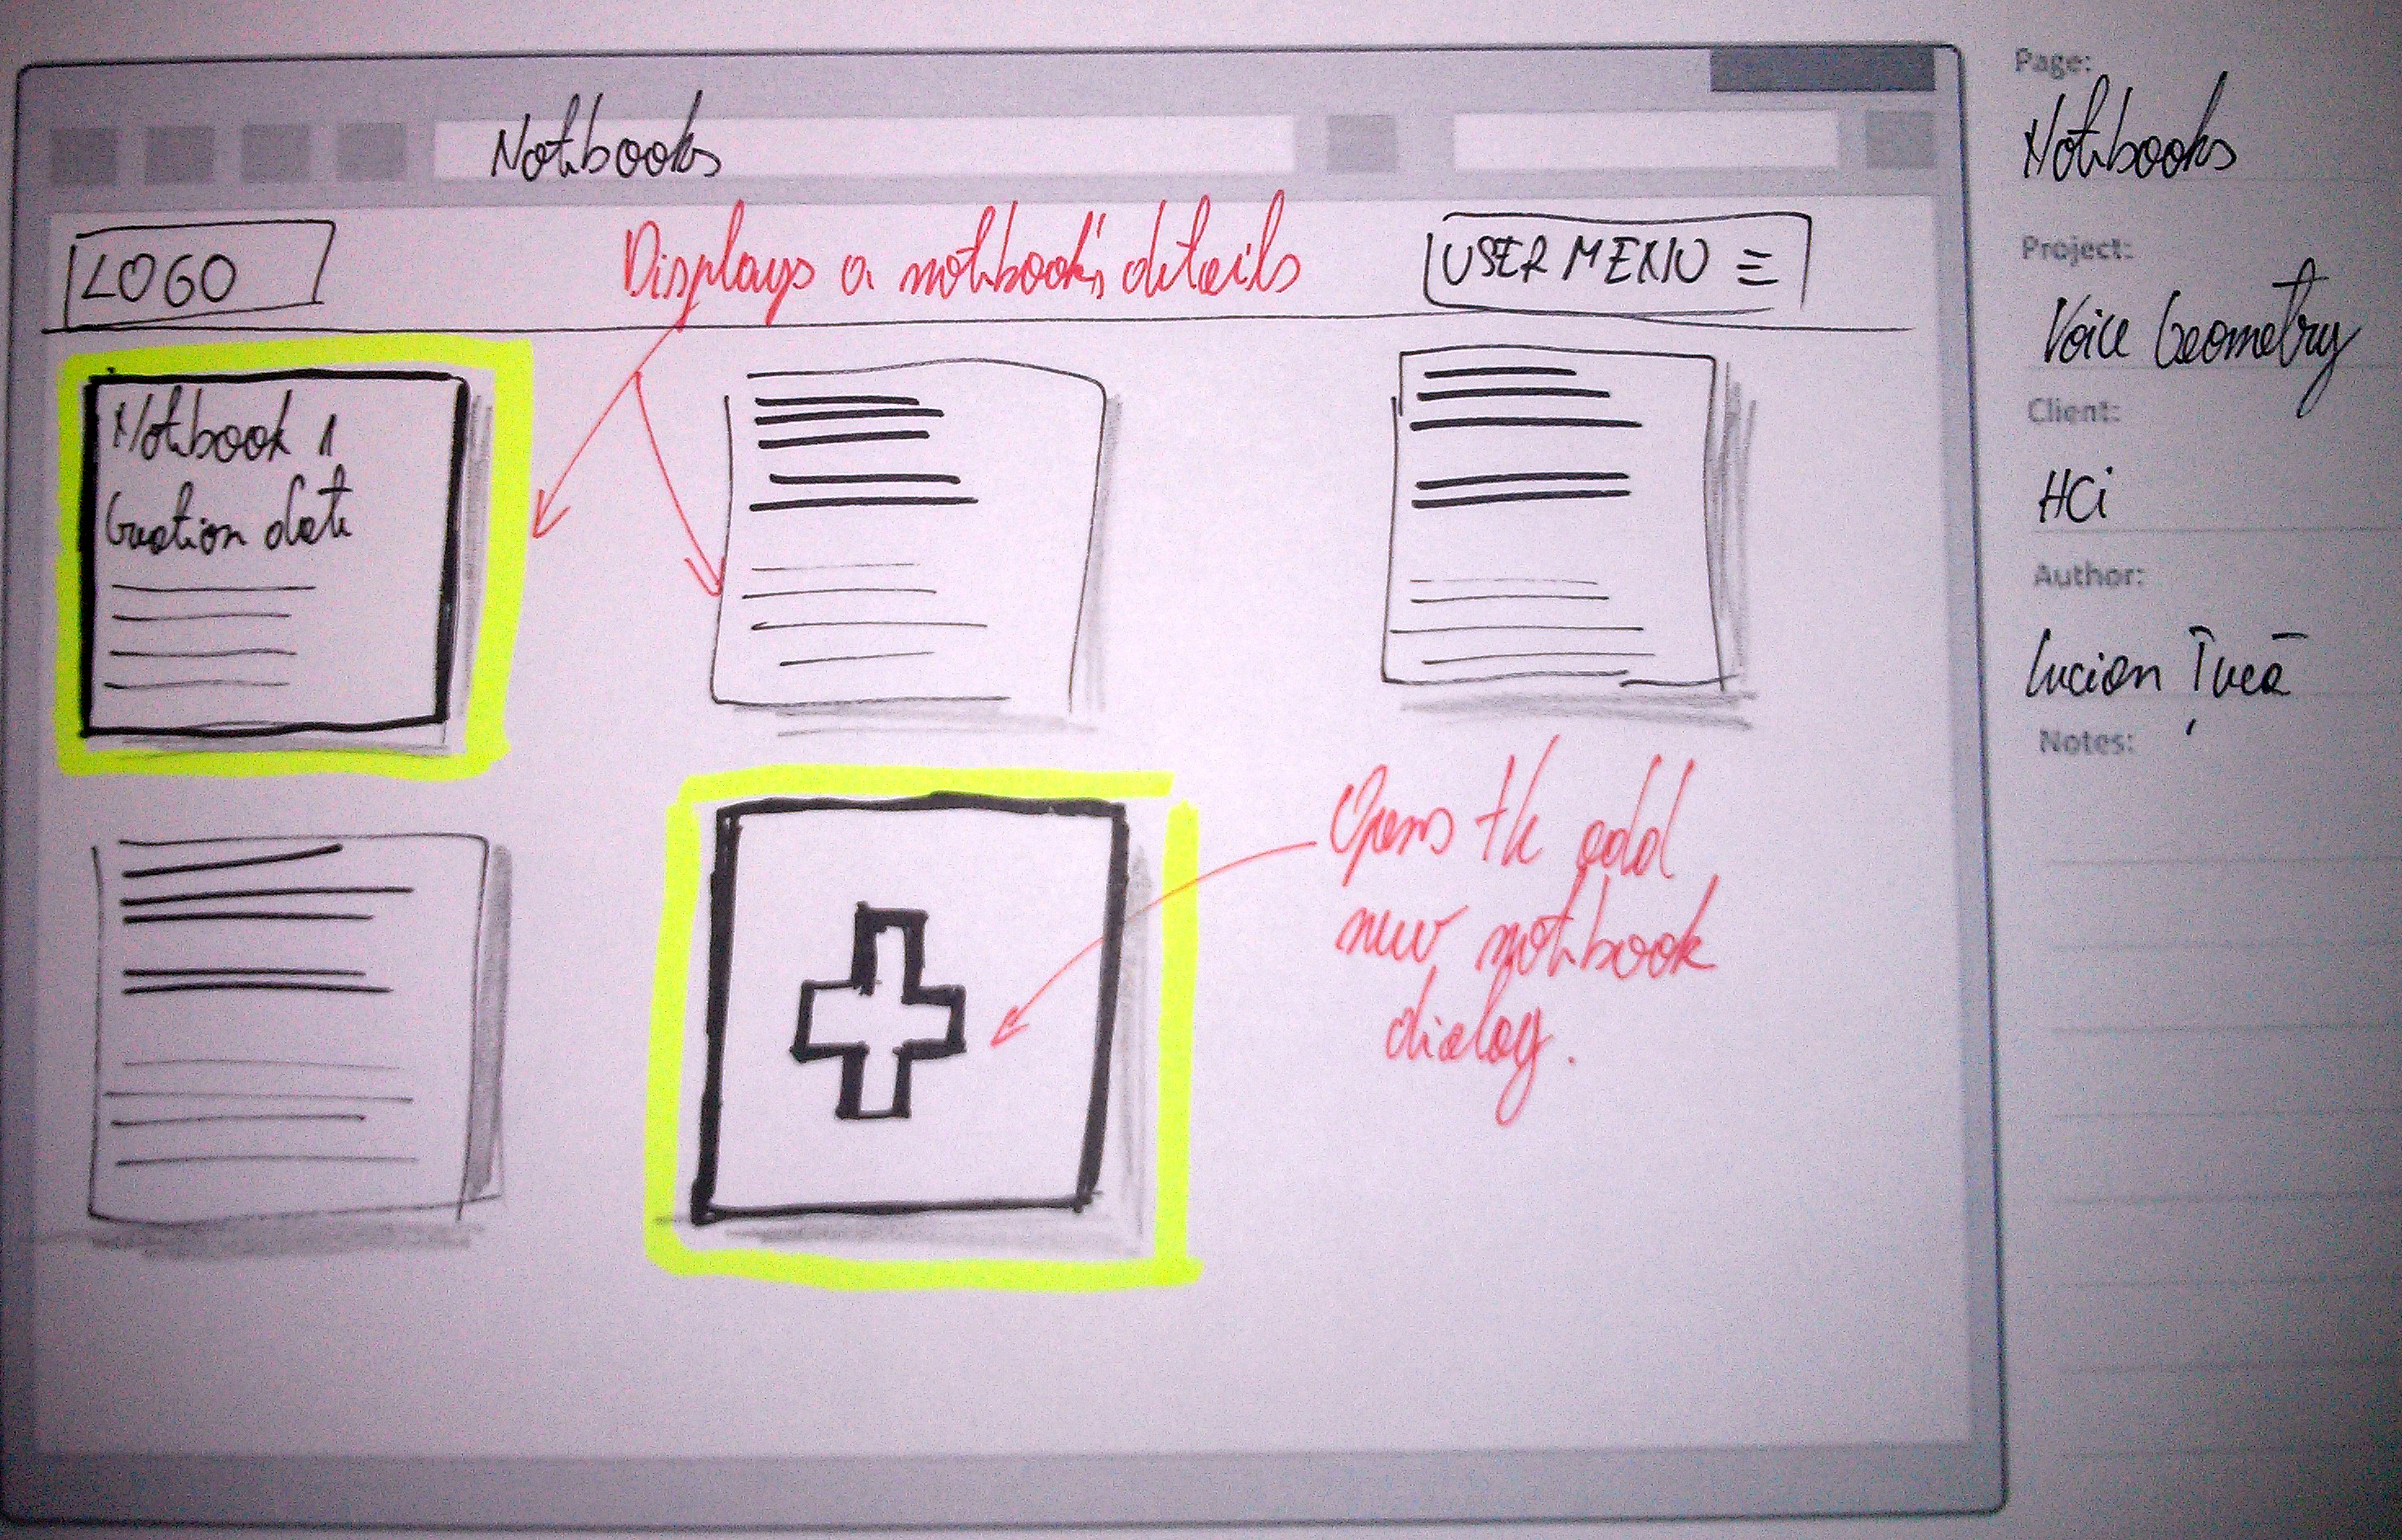 Notebooks
LOGO
Displays a notebook's details
USER MENU
Notebook 1
Creation date
Opens the add
new notebook
dialog.
Page:
Notebooks
Project:
Voice Geometry
Client:
HCi
Author:
Lucian Țucă
Notes: